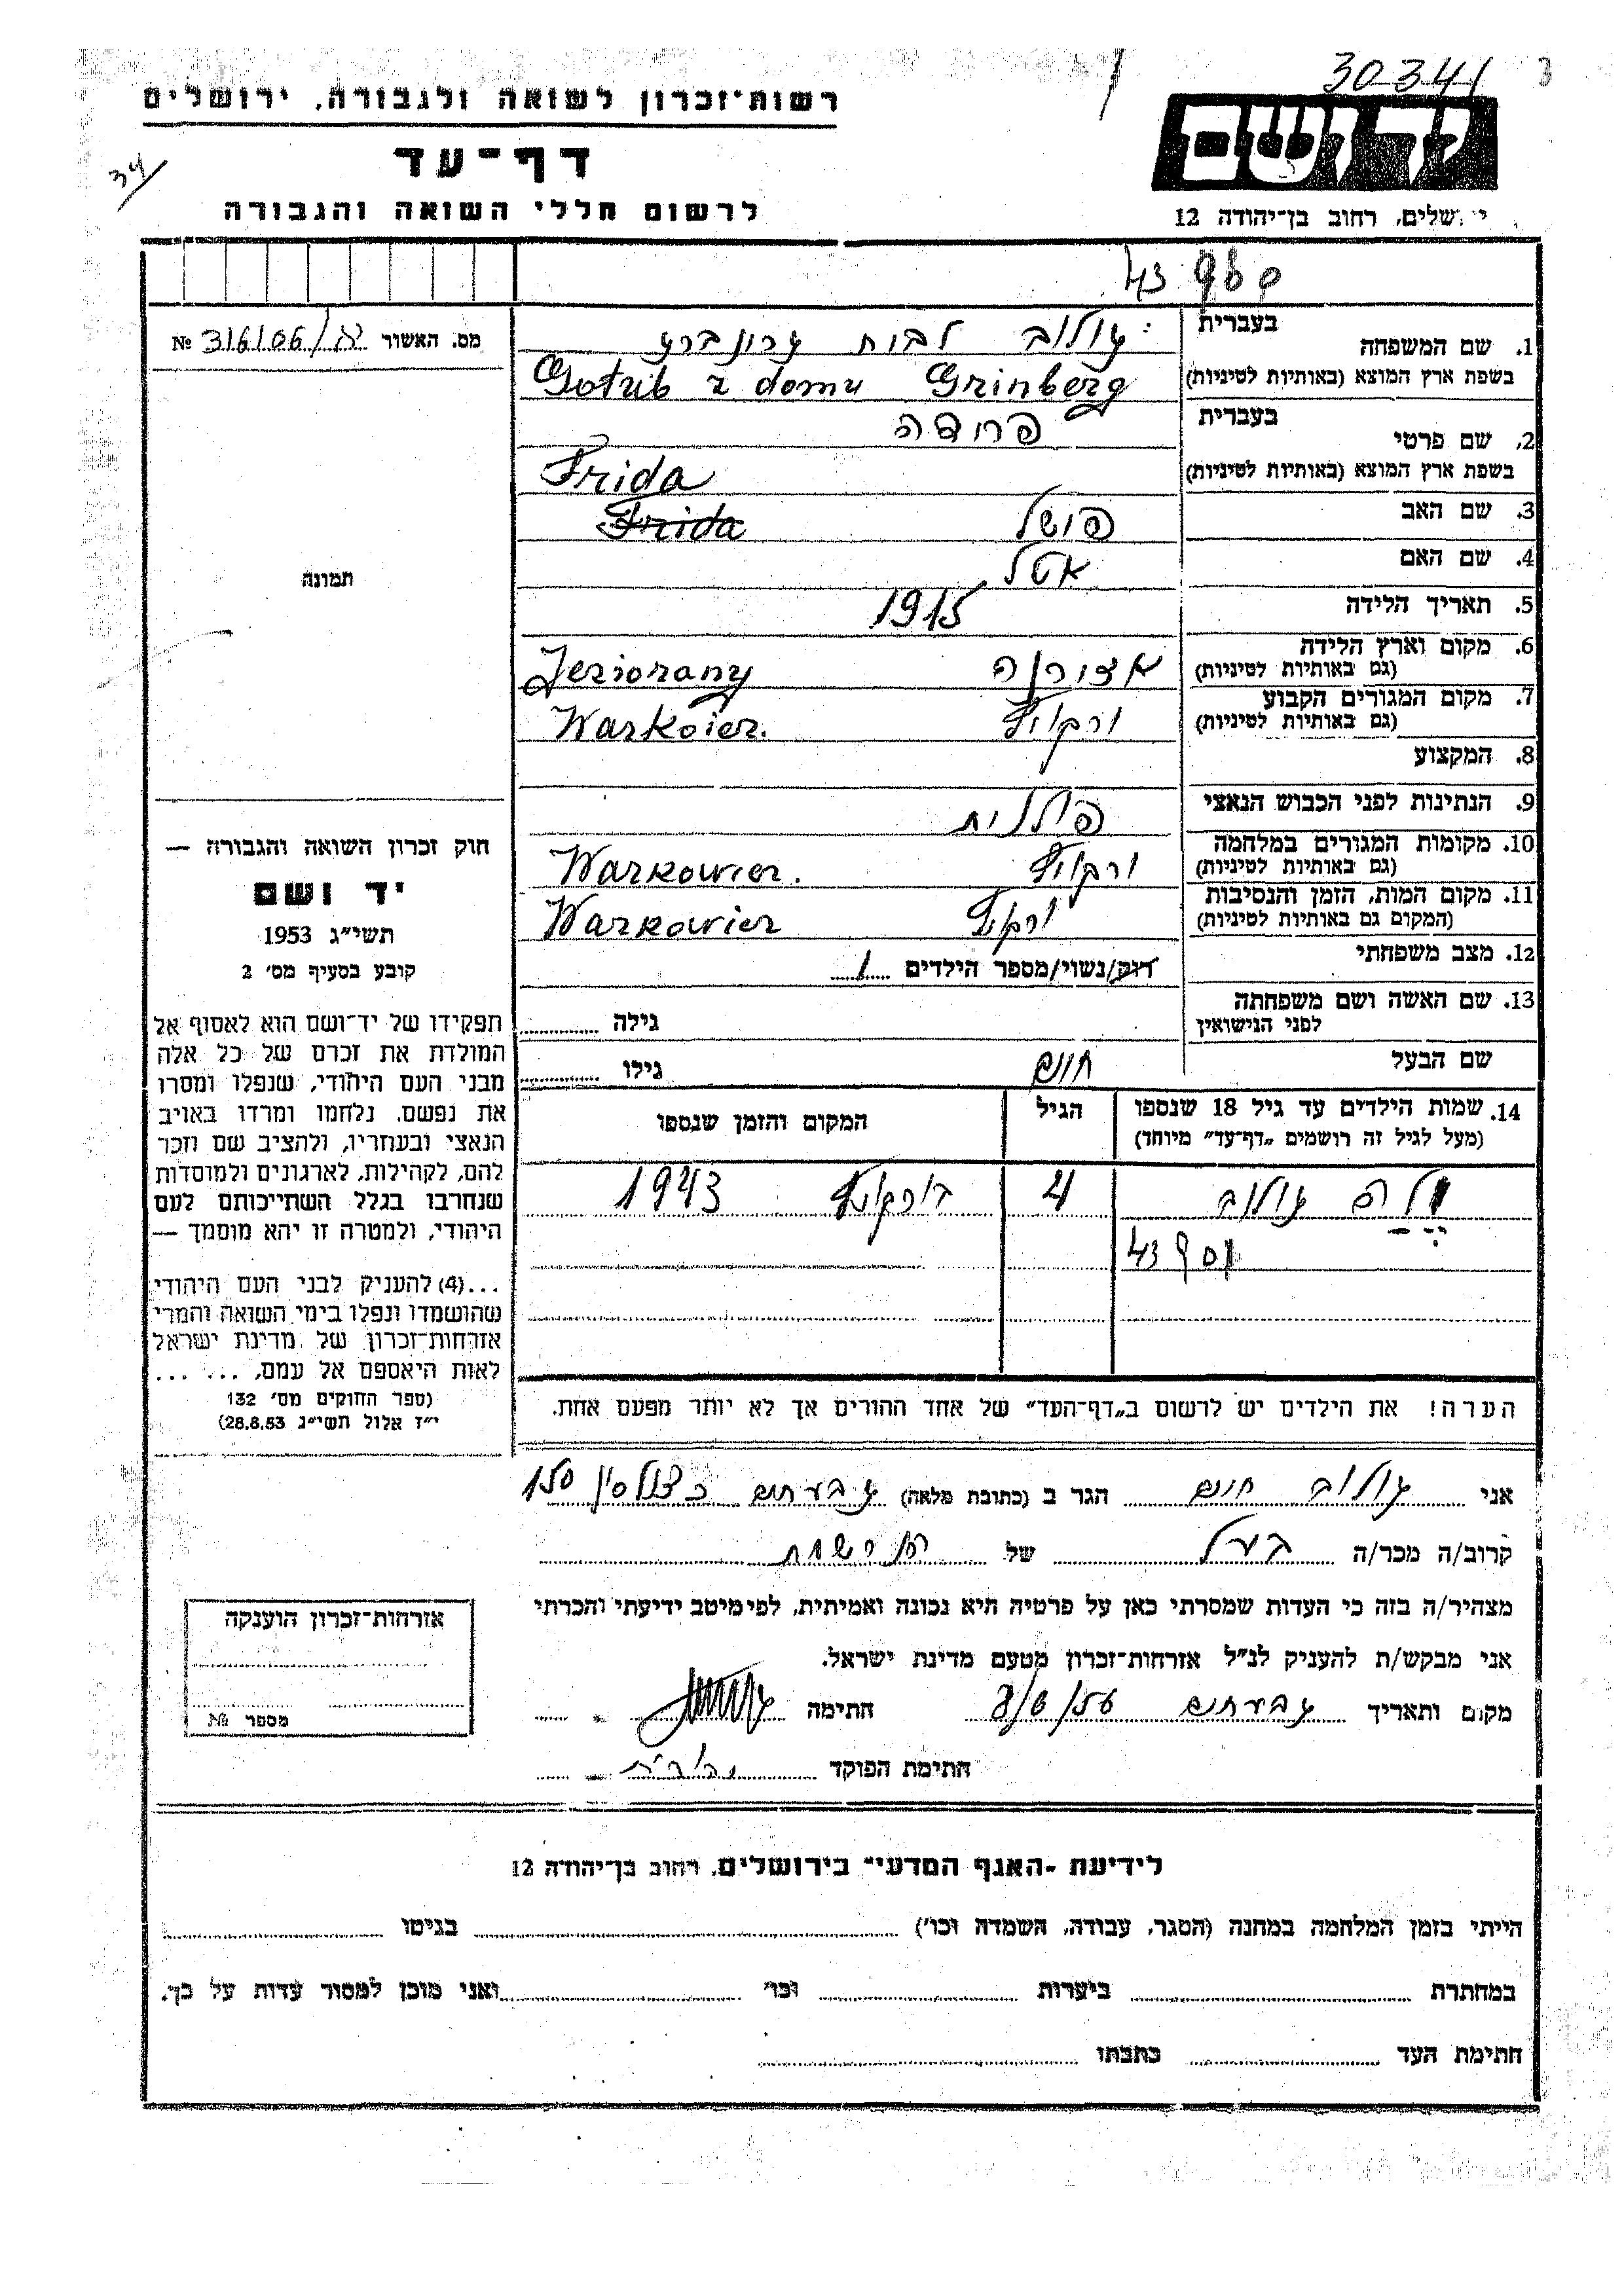 30341
רשות־זכרון לשואה ולגבורה, ירושלים
ידושם
דף־עד
34
לרשום חללי השואה והגבורה
ירושלים, רחוב בן־יהודה 12
43
מס. האשור № 316106
1. שם המשפחה
בעברית
לבית גרינברג
בשפת ארץ המוצא (באותיות לטיניות)
Gotrib z domu Grinberg
2. שם פרטי
בעברית
פרידה
בשפת ארץ המוצא (באותיות לטיניות)
Frida
3. שם האב
Frida
4. שם האם
אטל
5. תאריך הלידה
1915
6. מקום וארץ הלידה
(גם באותיות לטיניות)
Jeziorany
7. מקום המגורים הקבוע
(גם באותיות לטיניות)
Warkoier.
8. המקצוע
9. הנתינות לפני הכבוש הנאצי
פולנית
10. מקומות המגורים במלחמה
(גם באותיות לטיניות)
Warkowier.
11. מקום המות, הזמן והנסיבות
(המקום גם באותיות לטיניות)
Warkowier
12. מצב משפחתי
רווק/נשוי/מספר הילדים 1
13. שם האשה ושם משפחתה
לפני הנישואין
גילה
שם הבעל
חיים
גילו
תמונה
חוק זכרון השואה והגבורה —
יד ושם
תשי״ג 1953
קובע בסעיף מס׳ 2
תפקידו של יד־ושם הוא לאסוף אל
המולדת את זכרם של כל אלה
מבני העם היהודי, שנפלו ומסרו
את נפשם, נלחמו ומרדו באויב
הנאצי ובעוזריו, ולהציב שם וזכר
להם, לקהילות, לארגונים ולמוסדות
שנחרבו בגלל השתייכותם לעם
היהודי, ולמטרה זו יהא מוסמך —
...(4) להעניק לבני העם היהודי
שהושמדו ונפלו בימי השואה והמרי
אזרחות־זכרון של מדינת ישראל
לאות היאספם אל עמם, ... ...
(ספר החוקים מס׳ 132
י״ז אלול תשי״ג 28.8.53)
14. שמות הילדים עד גיל 18 שנספו
(מעל לגיל זה רושמים „דף־עד״ מיוחד)
הגיל
המקום והזמן שנספו
4
1943
43
הערה! את הילדים יש לרשום ב„דף־העד״ של אחד ההורים אך לא יותר מפעם אחת.
אני חיים הגר ב (כתובת מלאה) גבעתיים כצנלסון 150
קרוב/ה מכר/ה בעל של
מצהיר/ה בזה כי העדות שמסרתי כאן על פרטיה היא נכונה ואמיתית, לפי מיטב ידיעתי והכרתי
אני מבקש/ת להעניק לנ״ל אזרחות־זכרון מטעם מדינת ישראל.
מקום ותאריך גבעתיים חתימה
חתימת הפוקד
אזרחות־זכרון הוענקה
מספר №
לידיעת „האגף המדעי״ בירושלים, רחוב בן־יהודה 12
הייתי בזמן המלחמה במחנה (הסגר, עבודה, השמדה וכו׳) בגיטו
במחתרת ביערות וכו׳ ואני מוכן למסור עדות על כך.
חתימת העד כתבתו